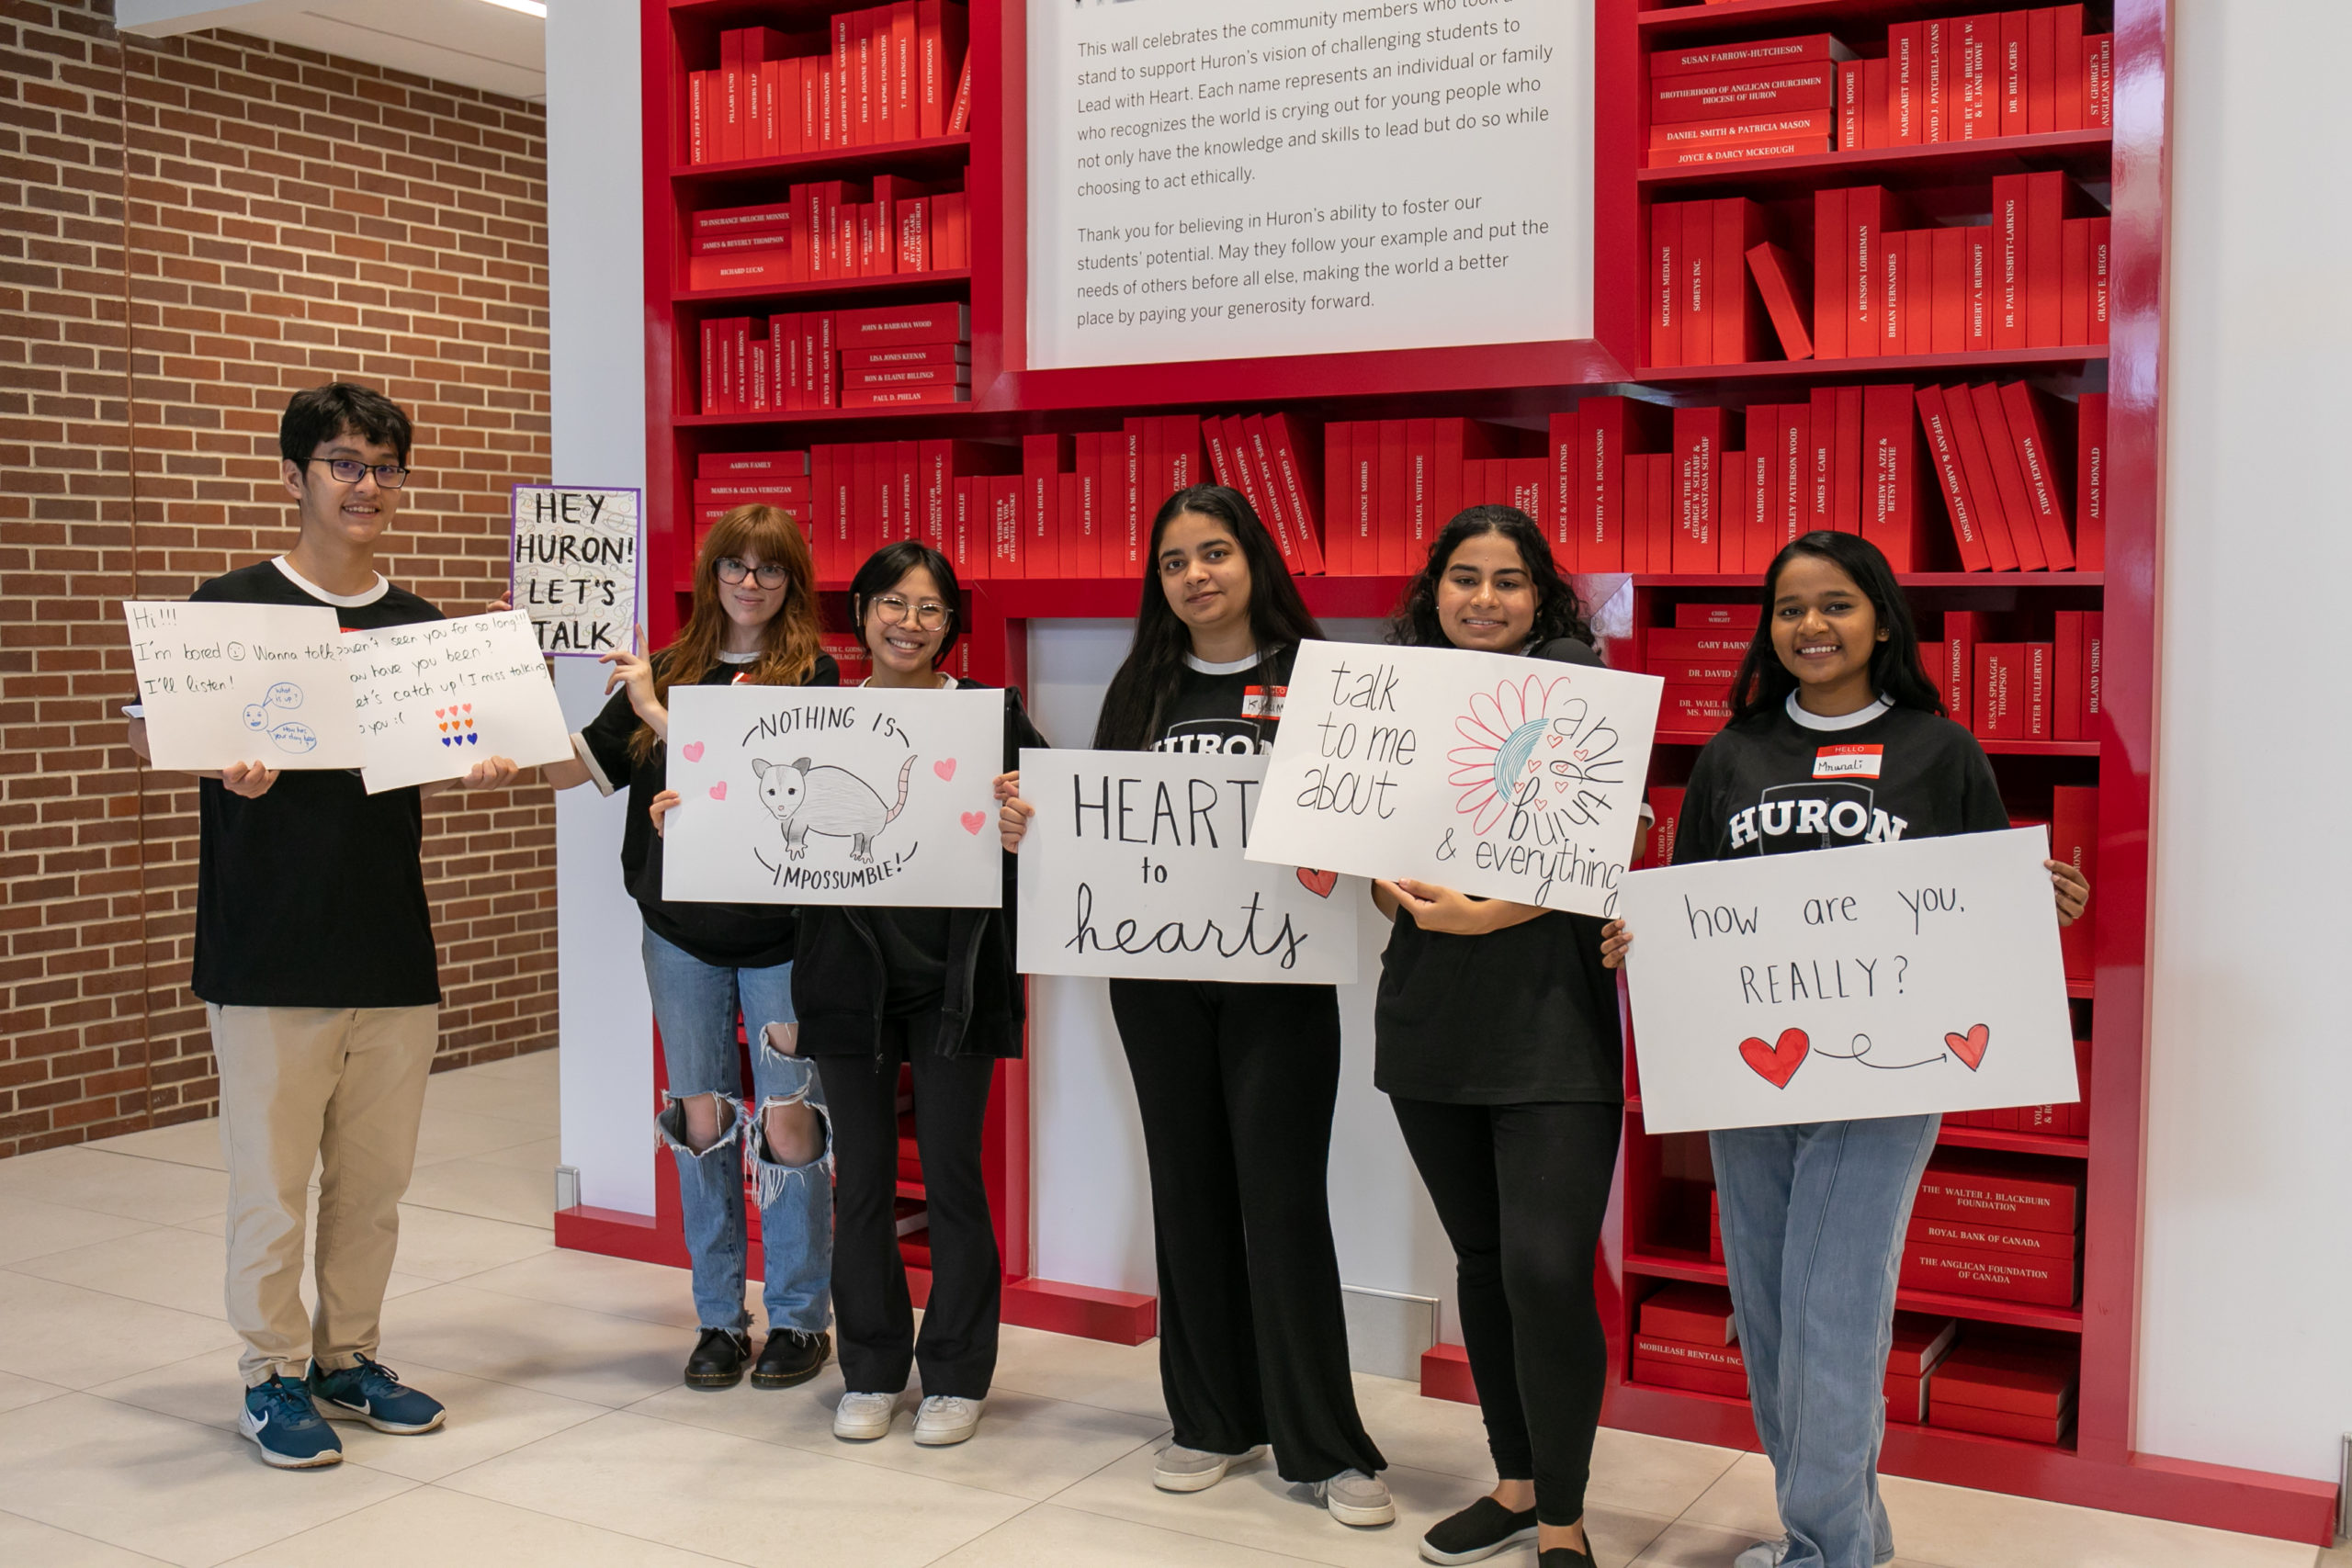 This wall celebrates the community members who took
stand to support Huron's vision of challenging students to
Lead with Heart. Each name represents an individual or family
who recognizes the world is crying out for young people who
not only have the knowledge and skills to lead but do so while
choosing to act ethically.
Thank you for believing in Huron's ability to foster our
students' potential. May they follow your example and put the
needs of others before all else, making the world a better
place by paying your generosity forward.
AMY & JEFF BARYSHNIK
PILLARS FUND
LERNERS LLP
PIRIE FOUNDATION
DR. GEOFREY & MRS. SARAH READ
FRED & JOANNE GROCH
THE KPMG FOUNDATION
T. FRED KINGSMILL
JUDY STRONGMAN
TD INSURANCE MELOCHE MONNEX
JAMES & BEVERLY THOMPSON
RICHARD LUCAS
RICCARDO LEOFANTI
DANIEL BAIN
ST. MARK'S
BY-THE-LAKE
ANGLICAN CHURCH
JACK & LORE BROWN
DON & SANDRA LETTON
DR. EDDY SMET
REV'D DR. GARY THORNE
JOHN & BARBARA WOOD
LISA JONES KEENAN
RON & ELAINE BILLINGS
PAUL D. PHELAN
SUSAN FARROW-HUTCHESON
BROTHERHOOD OF ANGLICAN CHURCHMEN
DIOCESE OF HURON
DANIEL SMITH & PATRICIA MASON
JOYCE & DARCY MCKEOUGH
HELEN E. MOORE
MARGARET FRALEIGH
DAVID J. PATCHELL-EVANS
THE RT. REV. BRUCE H. W.
& E. JANE HOWE
DR. BILL ACRES
ST. GEORGE'S
ANGLICAN CHURCH
MICHAEL MEDLINE
SOBEYS INC.
A. BENSON LORRIMAN
BRIAN FERNANDES
ROBERT A. RUBINOFF
DR. PAUL NESBITT-LARKING
GRANT E. BEGGS
AARON FAMILY
MARIUS & ALEXA VERESEZAN
DAVID HUGHES
PAUL BEESTON
& KIM JEFFREYS
CHANCELLOR
STEPHEN N. ADAMS Q.C.
AUBREY W. BAILLIE
FRANK HOLMES
CALEB HAYHOE
DR. FRANCIS & MRS. ANGEL PANG
W. GERALD STRONGMAN
PRUDENCE MORRIS
MICHAEL WHITESIDE
BRUCE & JANICE HYNDS
TIMOTHY A. B. DUNCANSON
MAJOR THE REV.
GEORGE W. SCHARF &
MRS. ANASTASIA SCHARF
MARION OBRSER
PATERSON WOOD
JAMES E. CARR
ANDREW W. AZIZ &
BETSY HARVIE
TIFFANY & AARON ATCHESON
WARAICH FAMILY
ALLAN DONALD
CHRIS
WRIGHT
DR. DAVID
MARY THOMSON
SUSAN SPRAGGE
THOMPSON
PETER FULLERTON
ROLAND VISHNU
THE WALTER J. BLACKBURN
FOUNDATION
ROYAL BANK OF CANADA
THE ANGLICAN FOUNDATION
OF CANADA
MOBILEASE RENTALS INC.
Hi!!!
I'm bored Wanna talk?
I'll listen!
What
is up?
How has
your day been?
seen you for so long!!!
have you been?
catch up! I miss talking
you :(
HEY
HURON!
LET'S
TALK
NOTHING IS
IMPOSSUMBLE!
HURON
HEART
to
hearts
talk
to me
about
anything
& everything
HELLO
Mrunali
HURON
how are you.
REALLY?